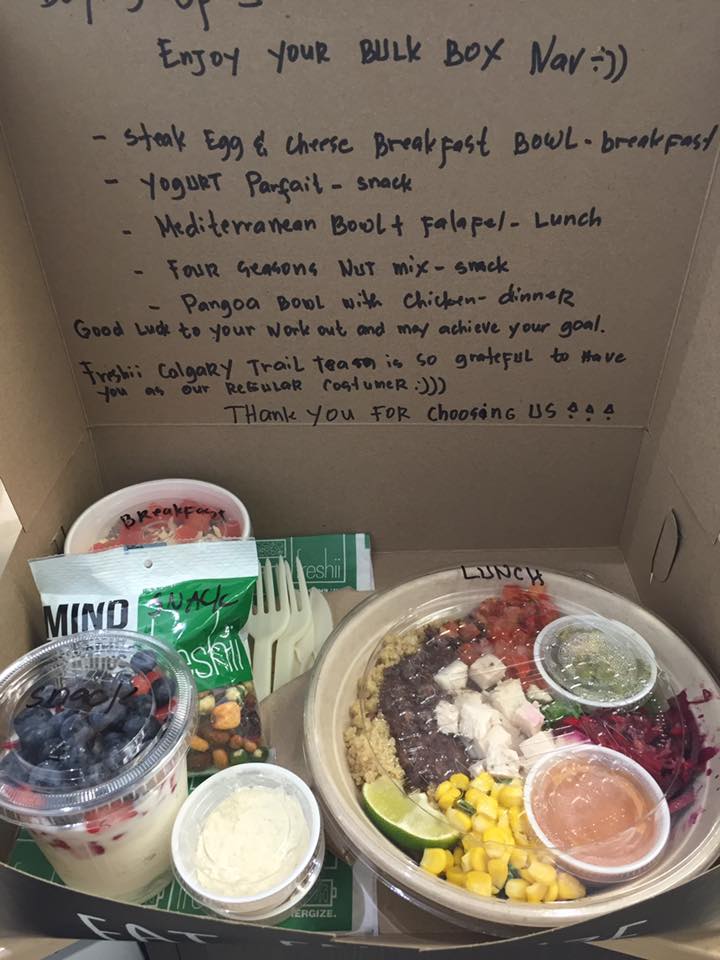 Enjoy YOUR BULK BOX Nav :))
- Steak Egg & Cheese Breakfast BOWL - breakfast
- YOGURT Parfait - snack
- Mediterranean Bowl + Falafel - Lunch
- Four Seasons Nut mix - snack
- Pangoa Bowl with Chicken - dinner
Good Luck to your work out and may achieve your goal.
Freshii Calgary Trail Team is so grateful to Have
you as our Regular Costumer :)))
THank YOU FOR Choosing US !!!
BReakFast
freshii
LUNCH
MIND
SNACK
freshii
snack
ENERGIZE.
EAT